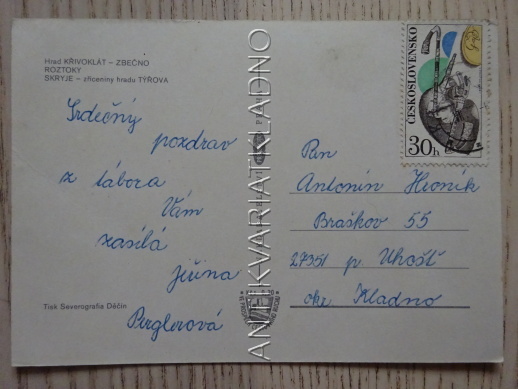 Hrad KŘIVOKLÁT – ZBEČNO
ROZTOKY
SKRYJE – zříceniny hradu TÝŘOVA
Srdečný
pozdrav
z tábora
Vám
zasílá
Jiřina
Perglerová
Tisk Severografia Děčín
ANTIKVARIAT KLADNO
ČESKOSLOVENSKO
30h
Pan
Antonín
Braškov 55
27351 p. Unhošť
okr. Kladno